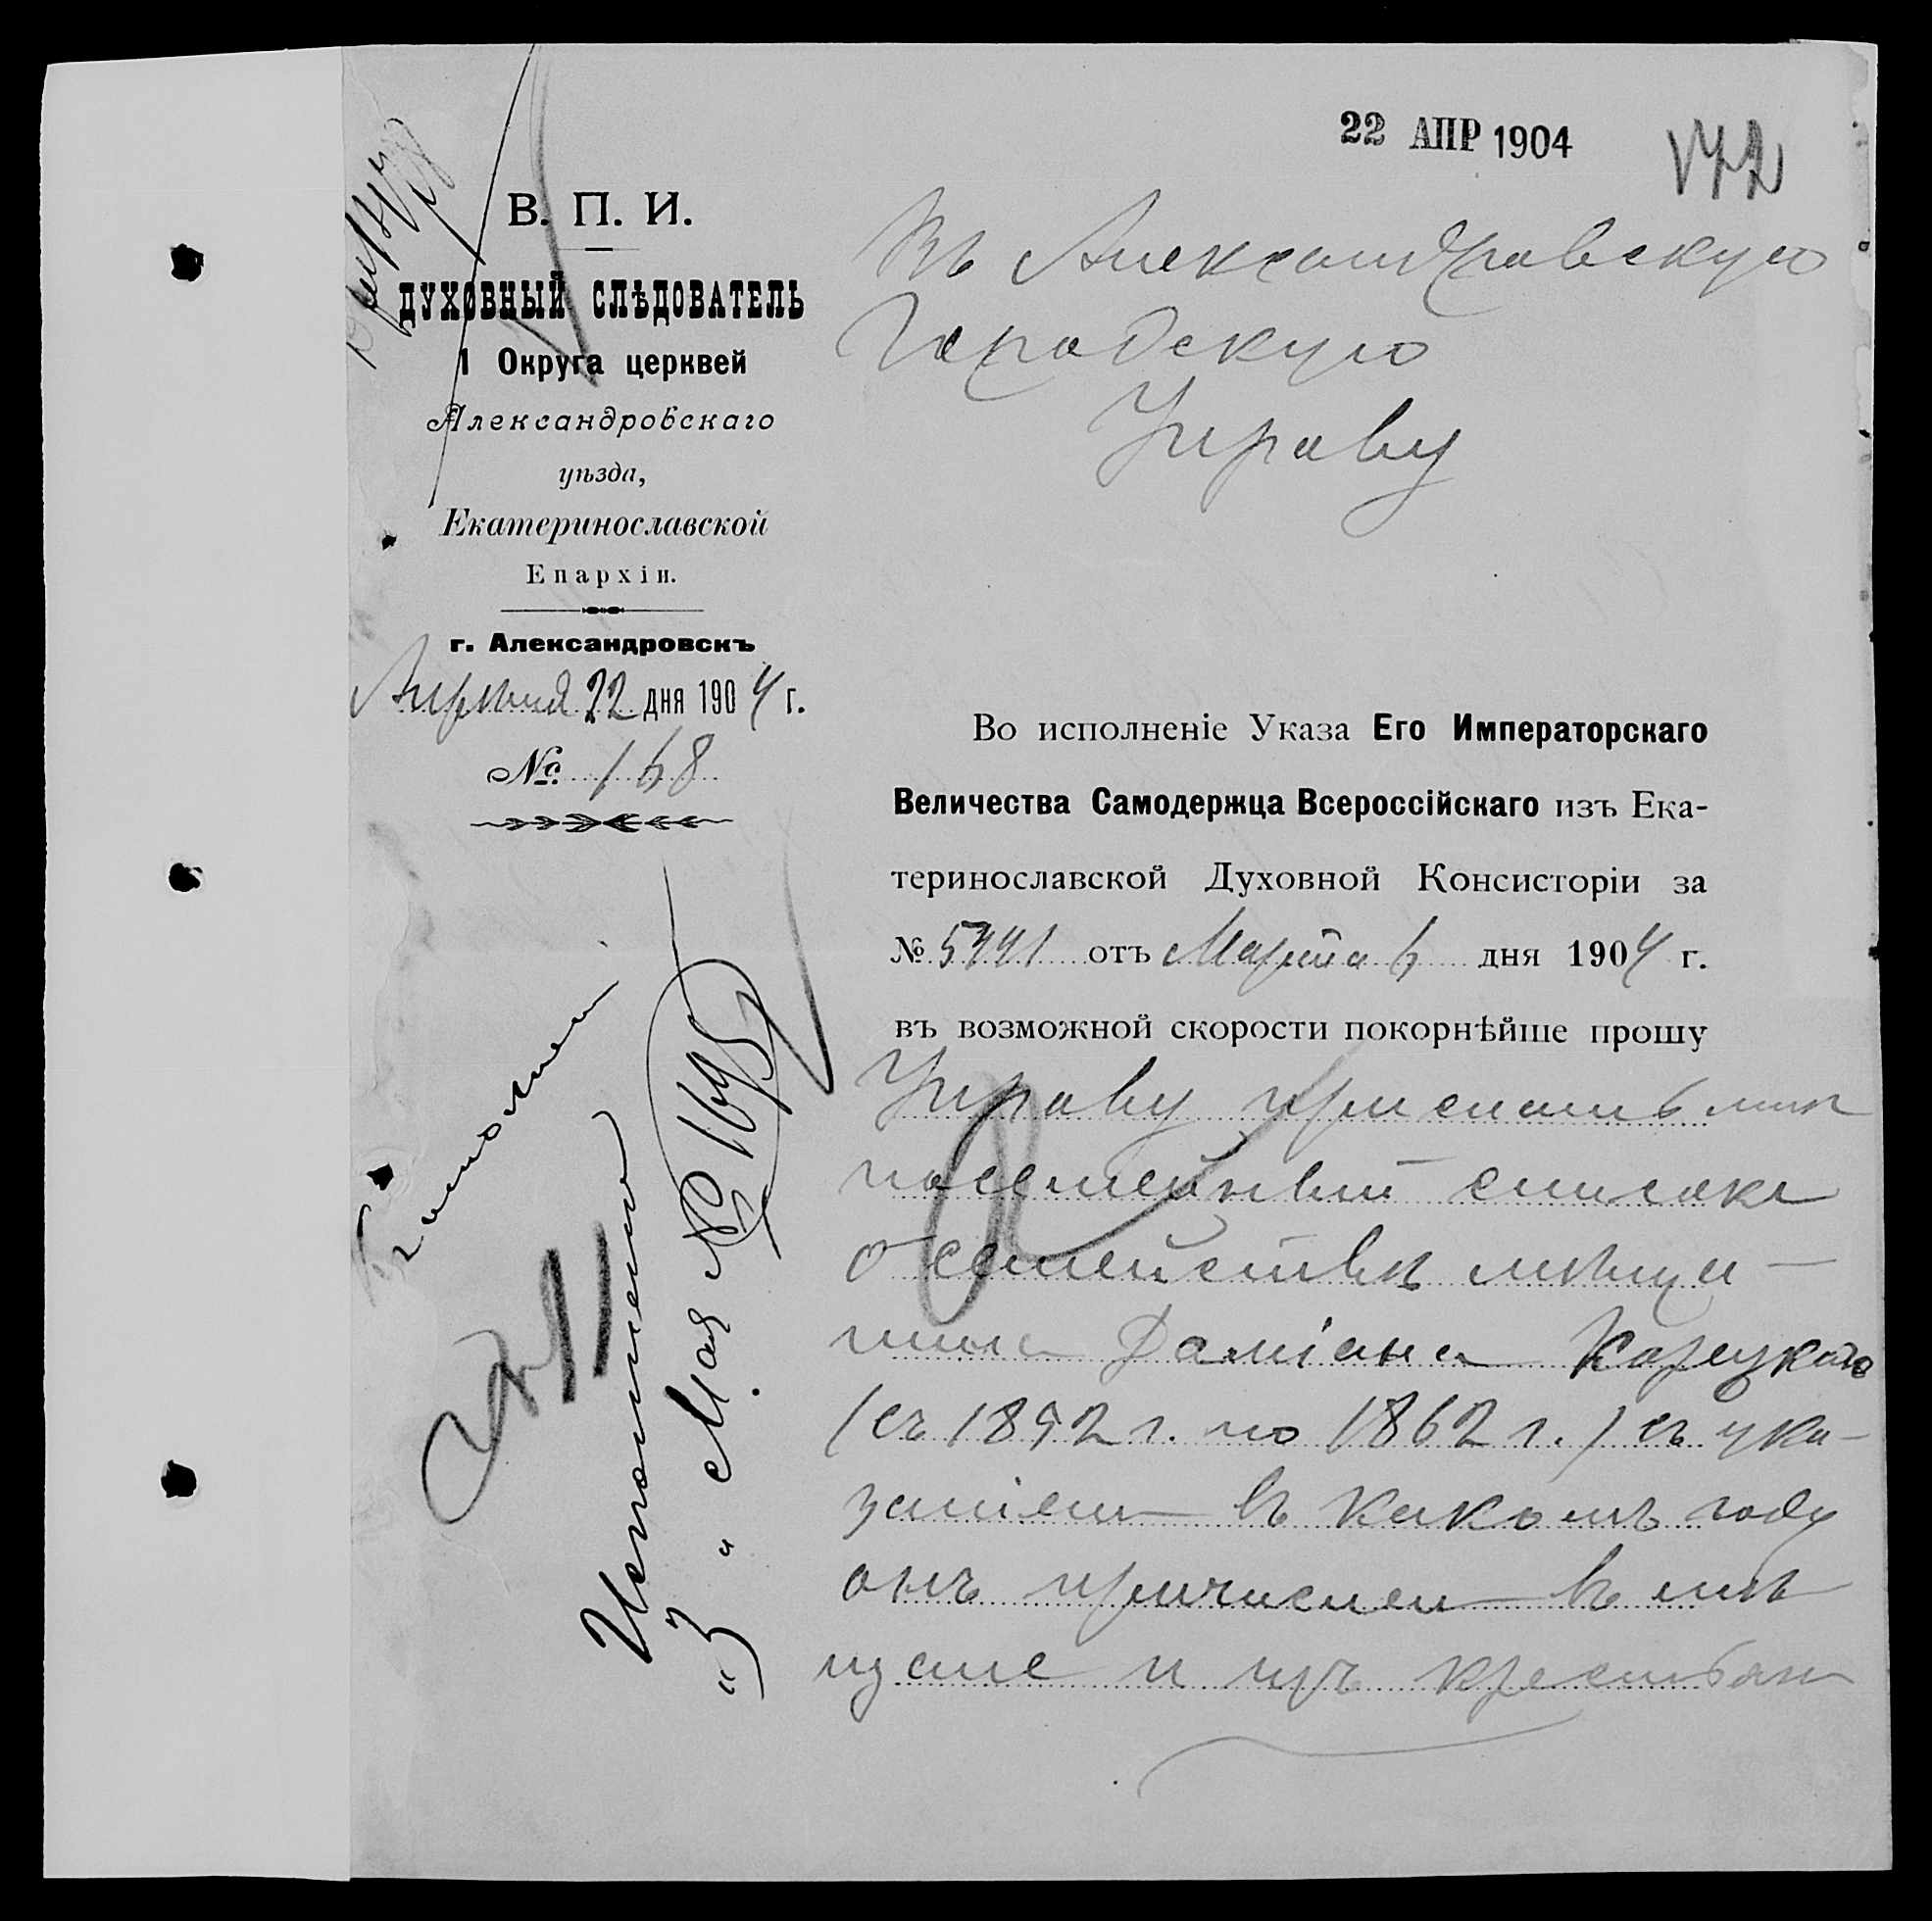 22 АПР 1904
172
В. П. И.
ДУХОВНЫЙ СЛѢДОВАТЕЛЬ
1 Округа церквей
Александровскаго
уѣзда,
Екатеринославской
Епархіи.
г. Александровскъ
Апрѣля 22 дня 1904 г.
№ 168
Въ Александровскую
Городскую
Управу
Во исполненіе Указа Его Императорскаго
Величества Самодержца Всероссійскаго изъ Ека-
теринославской Духовной Консисторіи за
№ 5441 отъ Марта 6 дня 1904 г.
въ возможной скорости покорнѣйше прошу
Управу прислать мнѣ
посемейный списокъ
о семействѣ мѣща-
нина Даміана Корецкаго
(съ 1852 г. по 1862 г.) съ ука-
заніем въ какомъ году
онъ причислен въ мѣ
щане и изъ крестьян
Исполнено
"3" Мая № 1695